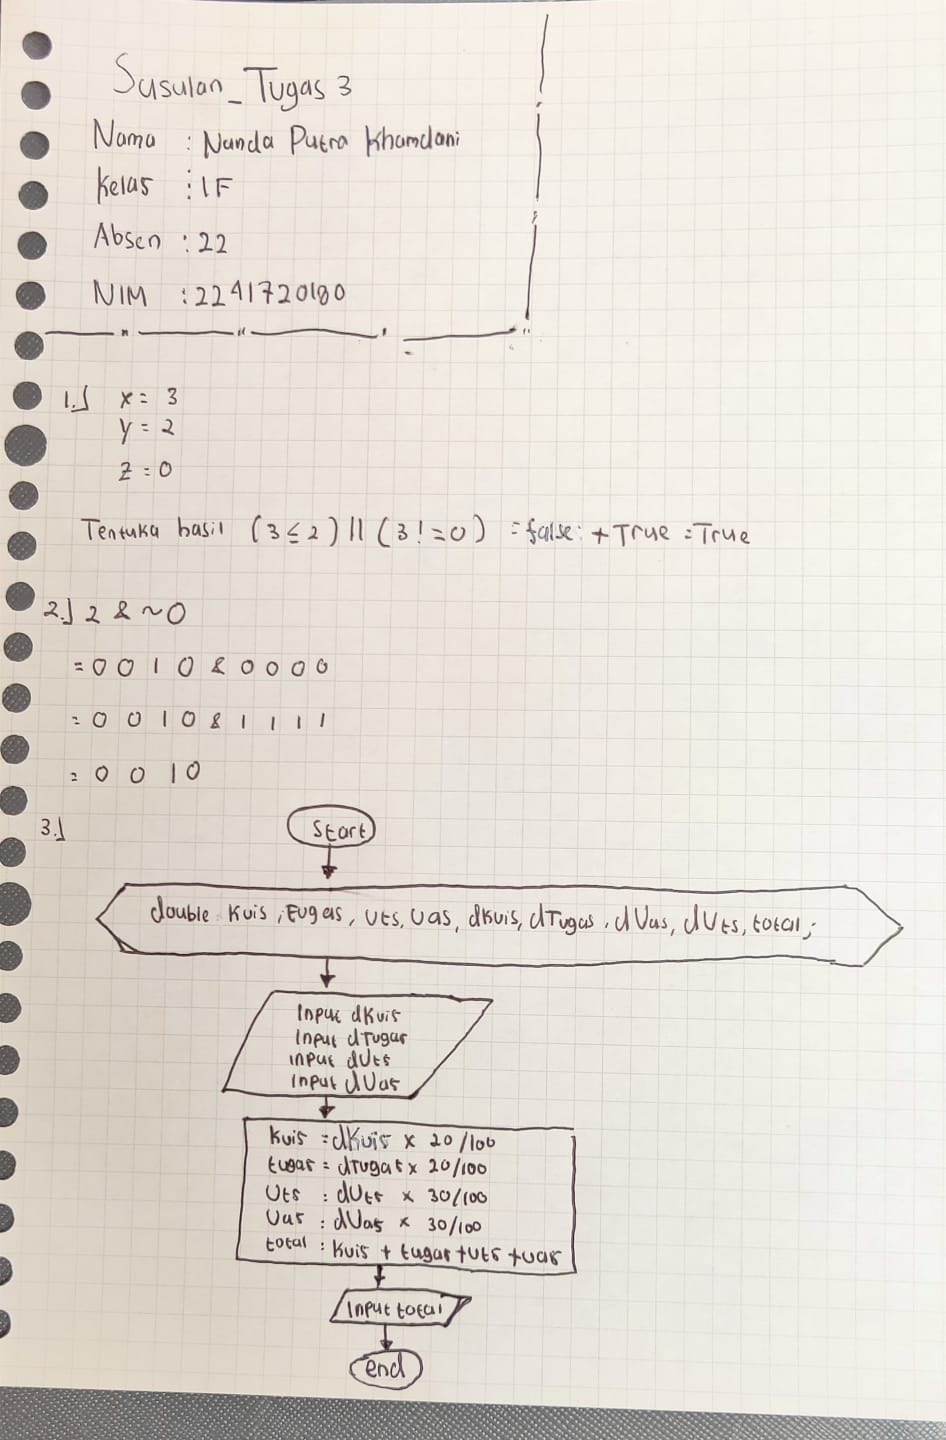 Susulan_Tugas 3
Nama : Nanda Putra Khamdani
Kelas : 1F
Absen : 22
NIM : 2241720180
1.] x = 3
y = 2
z = 0
Tentuka hasil (3 ≤ 2) || (3 != 0) = false + True = True
2.] 2 & ~0
= 0 0 1 0 & 0 0 0 0
= 0 0 1 0 & 1 1 1 1
= 0 0 1 0
3.]
Start
double Kuis, tugas, Uts, Uas, dKuis, dTugas, dUas, dUts, total;
Input dKuis
Input dTugas
input dUts
Input dUas
Kuis = dKuis x 20/100
tugas = dTugas x 20/100
Uts = dUts x 30/100
Uas = dUas x 30/100
total = Kuis + tugas + Uts + uas
Input total
end